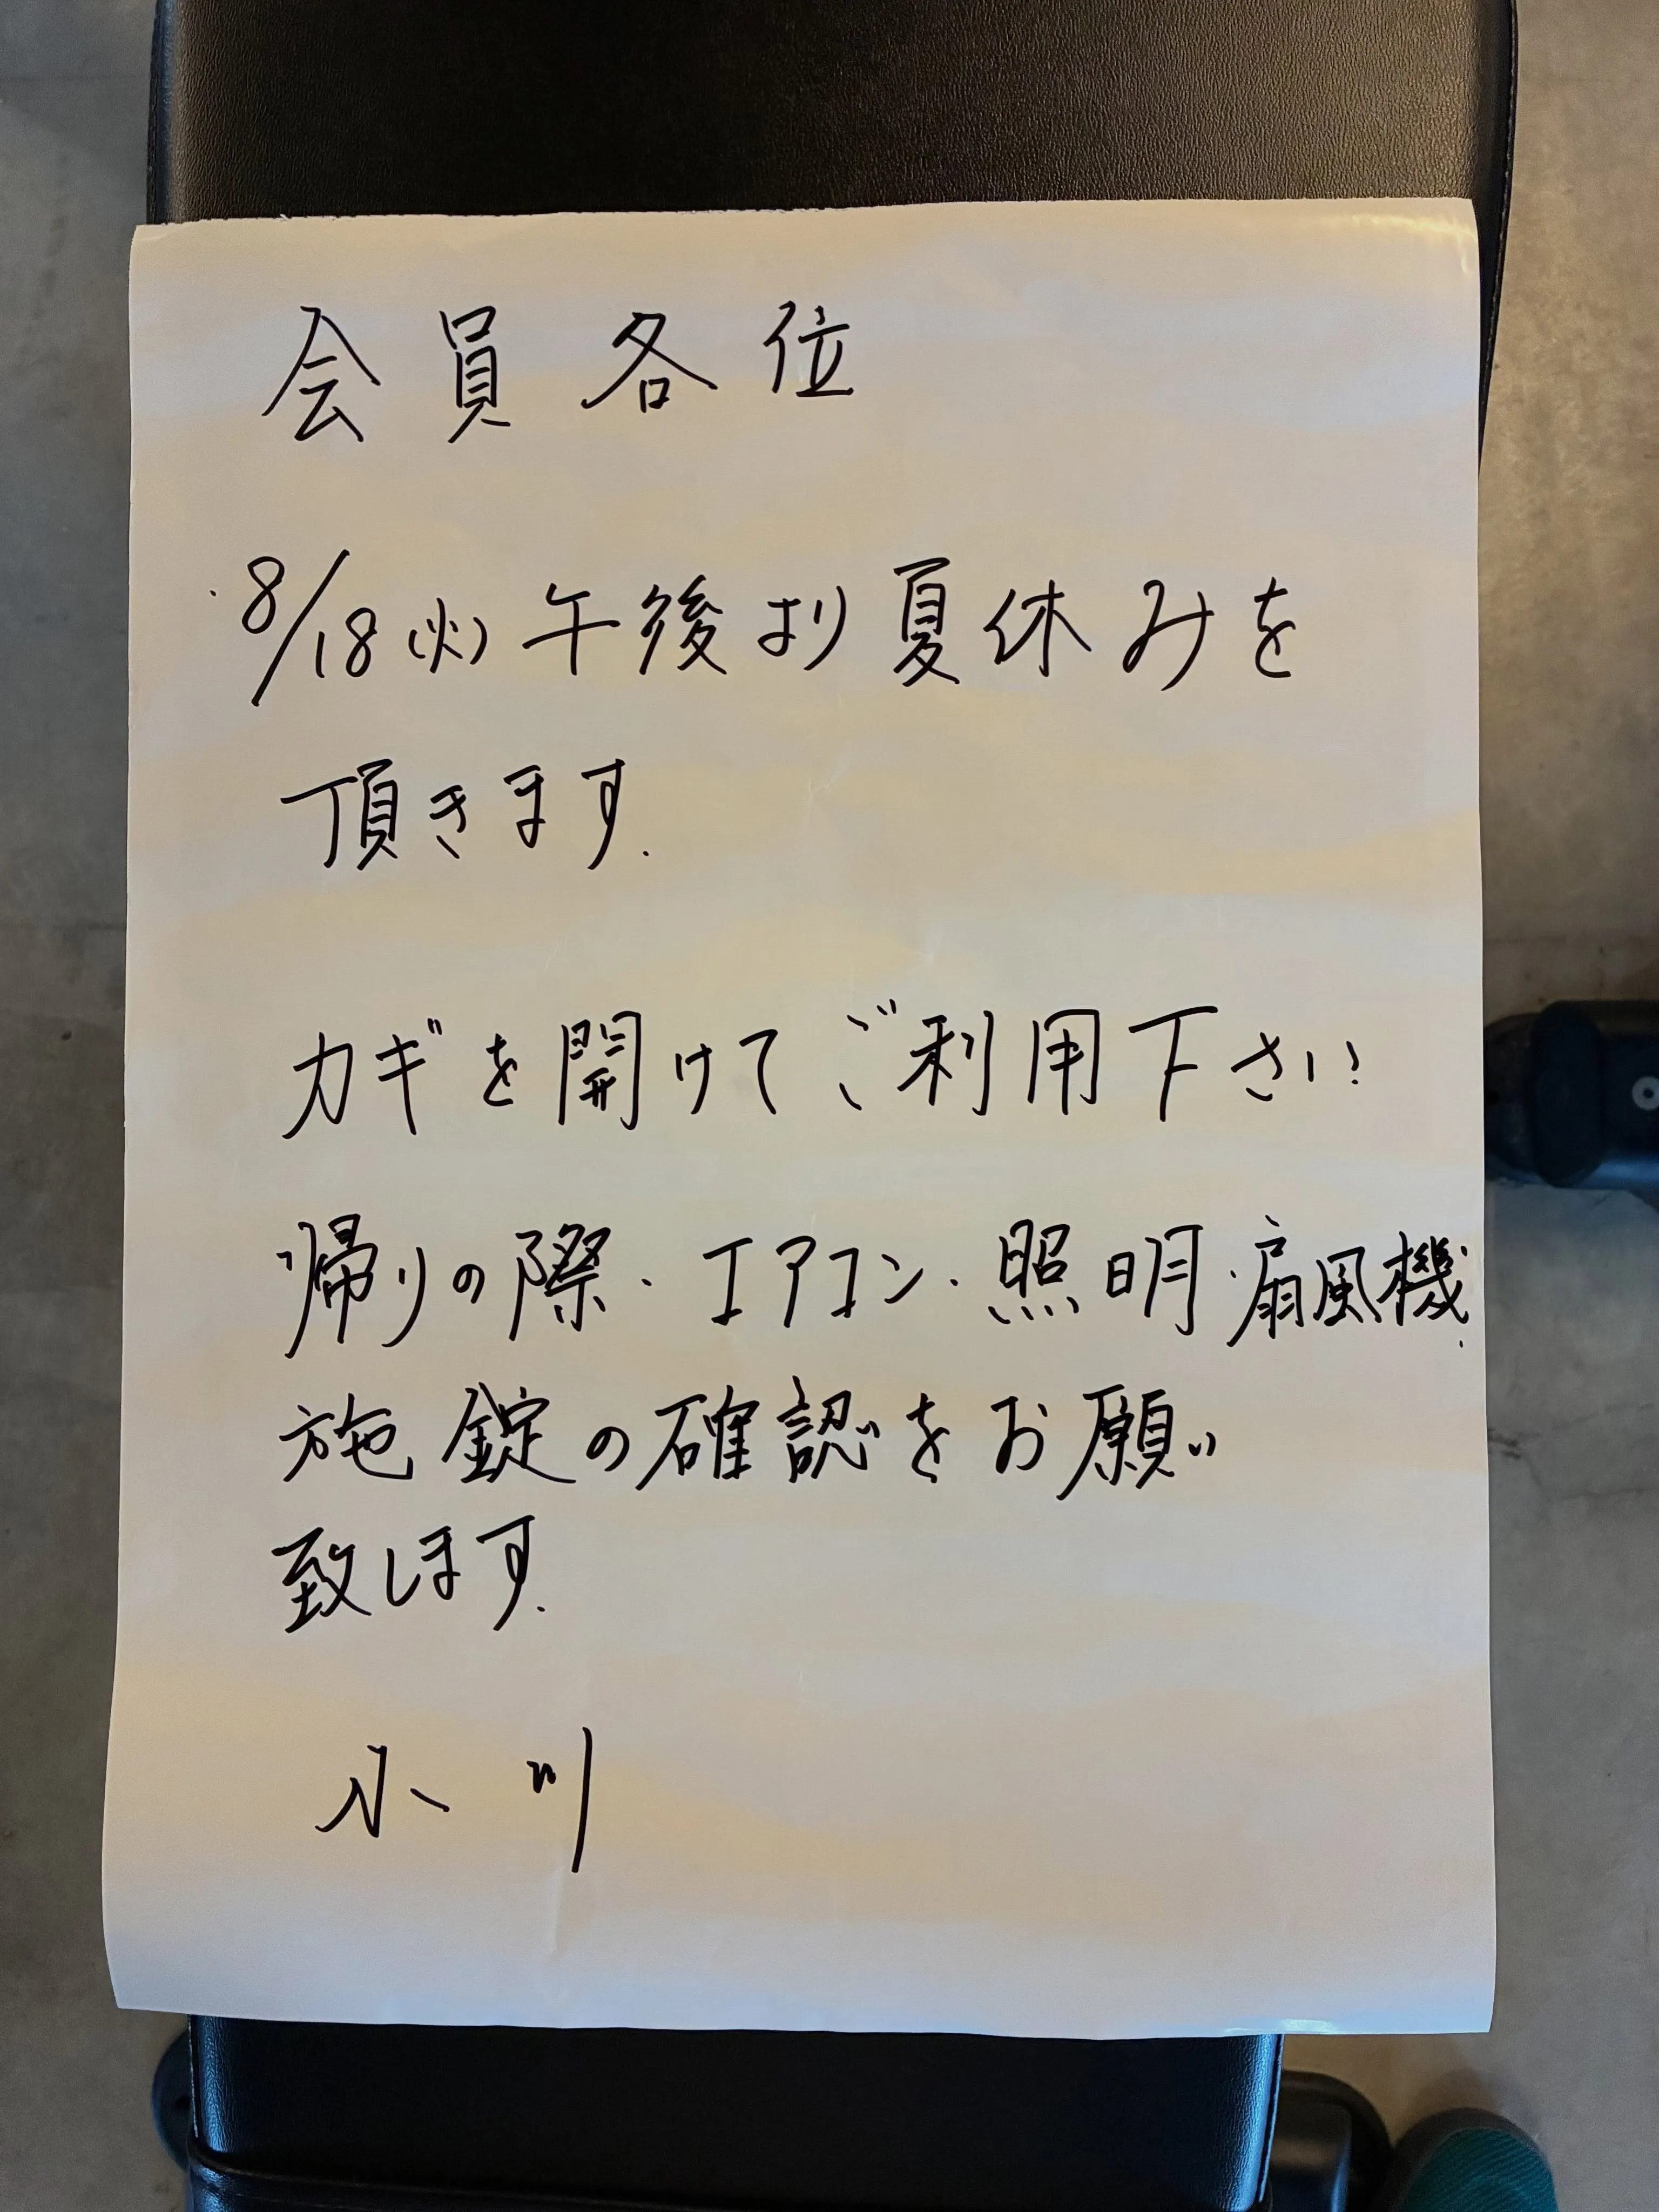 会員各位
・8/18(火)午後より夏休みを
頂きます.
カギを開けてご利用下さい
帰りの際・エアコン・照明・扇風機.
施錠の確認をお願い
致します.
小川